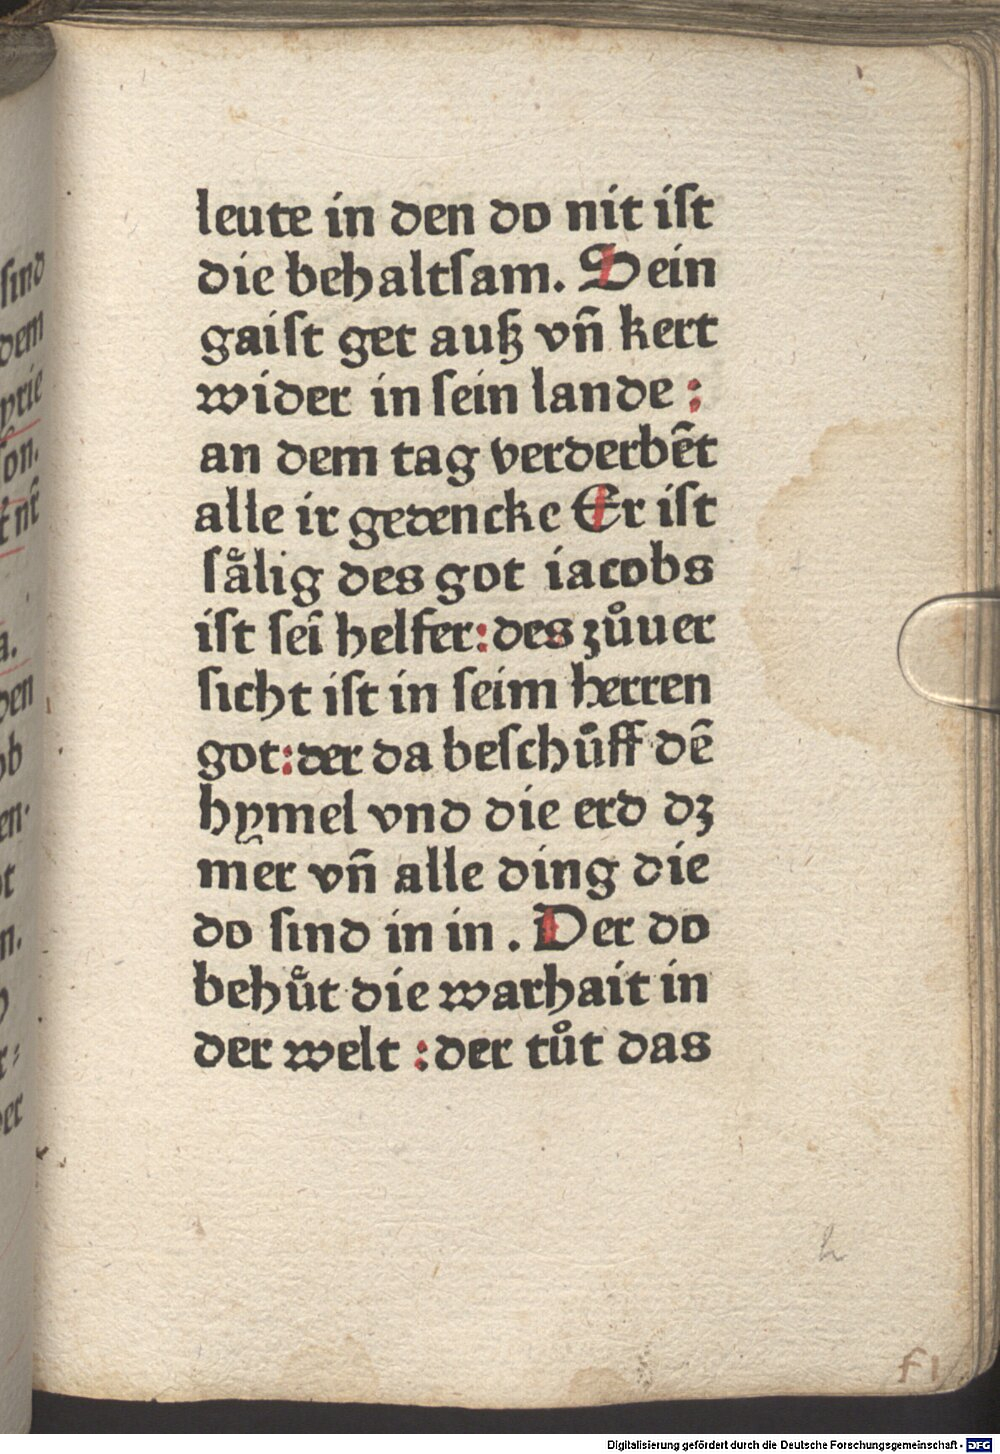 leute in den do nit ist
die behaltsam. Dein
gaist get auß vñ kert
wider in sein lande :
an dem tag verderbēt
alle ir gedencke Er ist
sålig des got iacobs
ist sei helfer: des zůuer
sicht ist in seim herren
got: der da beschůff dē
hymel vnd die erd dz
mer vñ alle ding die
do sind in in . Der do
behůt die warhait in
der welt : der tůt das
h
f1
sind
dem
yrie
son.
den
en.
Digitalisierung gefördert durch die Deutsche Forschungsgemeinschaft - DFG